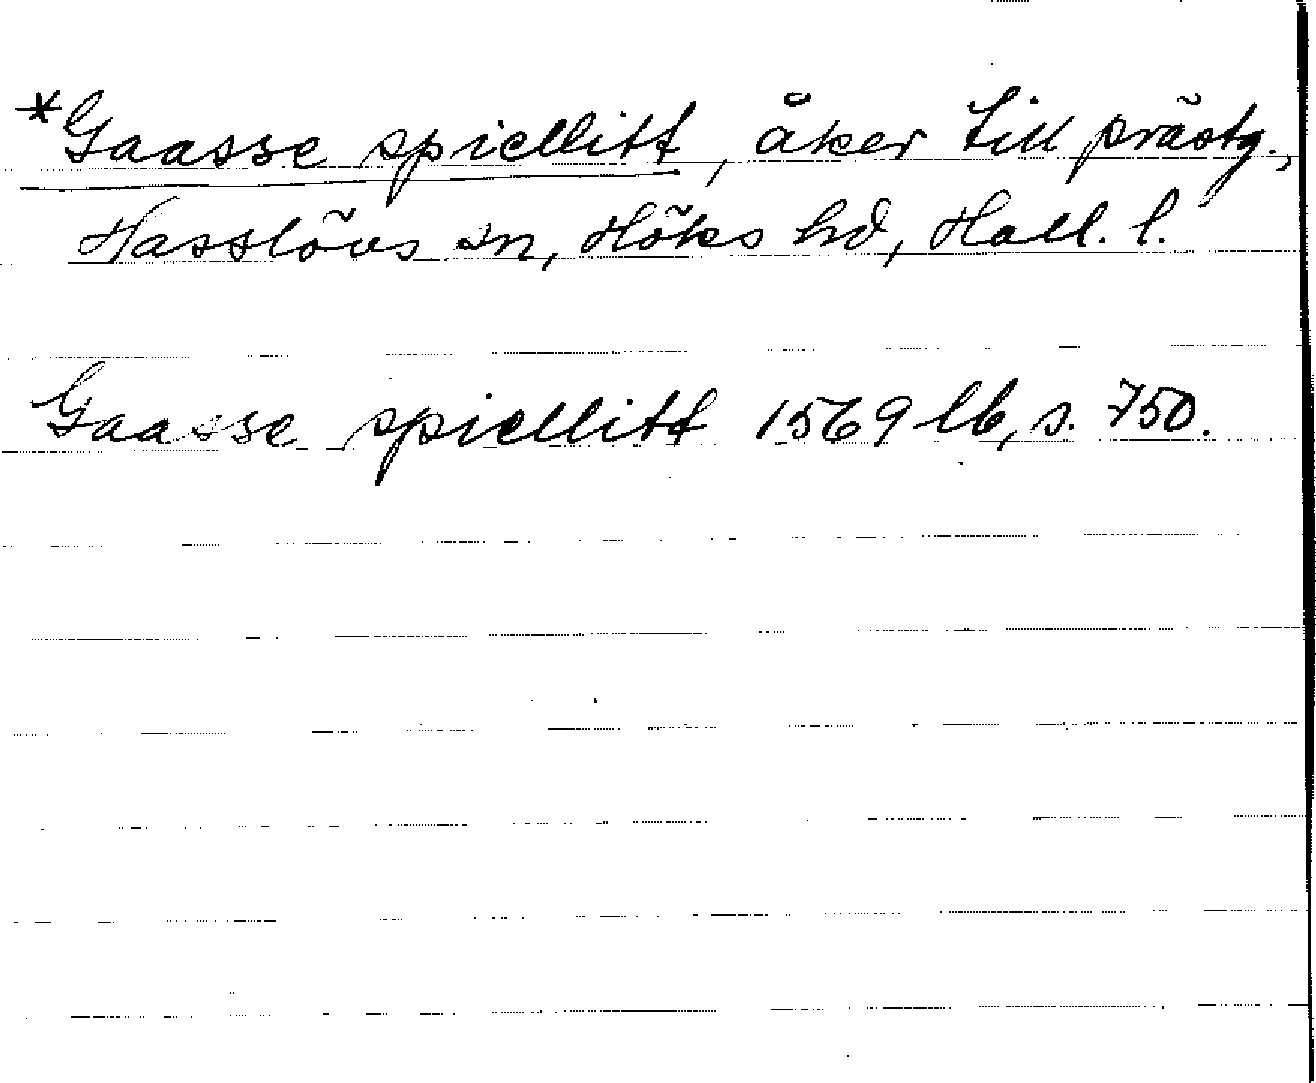 *Gaasse spiellitt, åker till prästg.,
Hasslövs sn, Höks hd, Hall. l.
Gaasse spiellitt 1569 lb, s. 750.